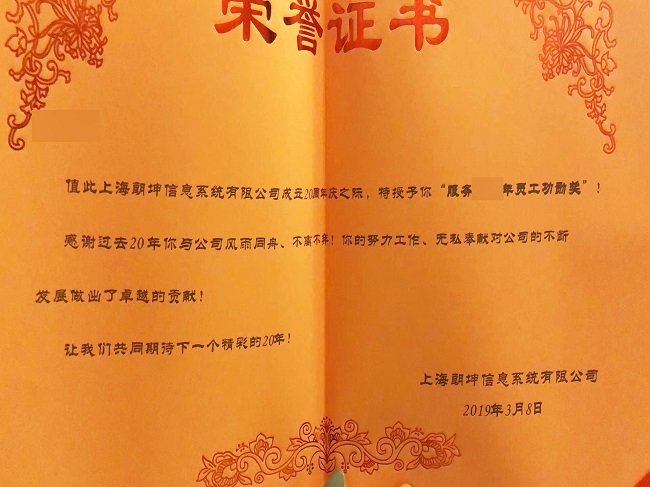 荣誉证书
值此上海朗坤信息系统有限公司成立20周年庆之际，特授予你“服务 年员工功勋奖”！
感谢过去20年你与公司风雨同舟、不离不弃！你的努力工作、无私奉献对公司的不断
发展做出了卓越的贡献！
让我们共同期待下一个精彩的20年！
上海朗坤信息系统有限公司
2019年3月8日